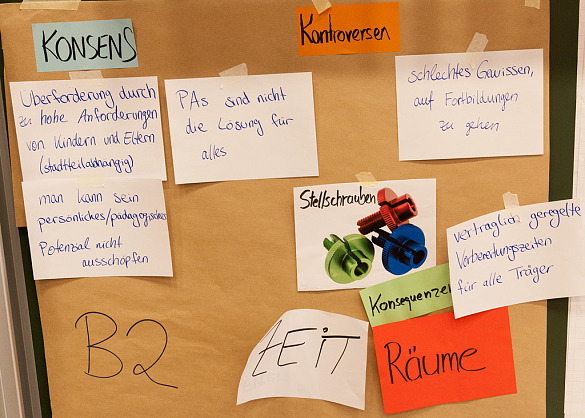 KONSENS
Kontroversen
Überforderung durch
zu hohe Anforderungen
von Kindern und Eltern
(stadtteilabhängig)
man kann sein
persönliches/pädagogisches
Potenzial nicht
ausschöpfen
PAs sind nicht
die Lösung für
alles
schlechtes Gewissen,
auf Fortbildungen
zu gehen
Stellschrauben
vertraglich geregelte
Vorbereitungszeiten
für alle Träger
Konsequenzen
B2
ZEiT
Räume